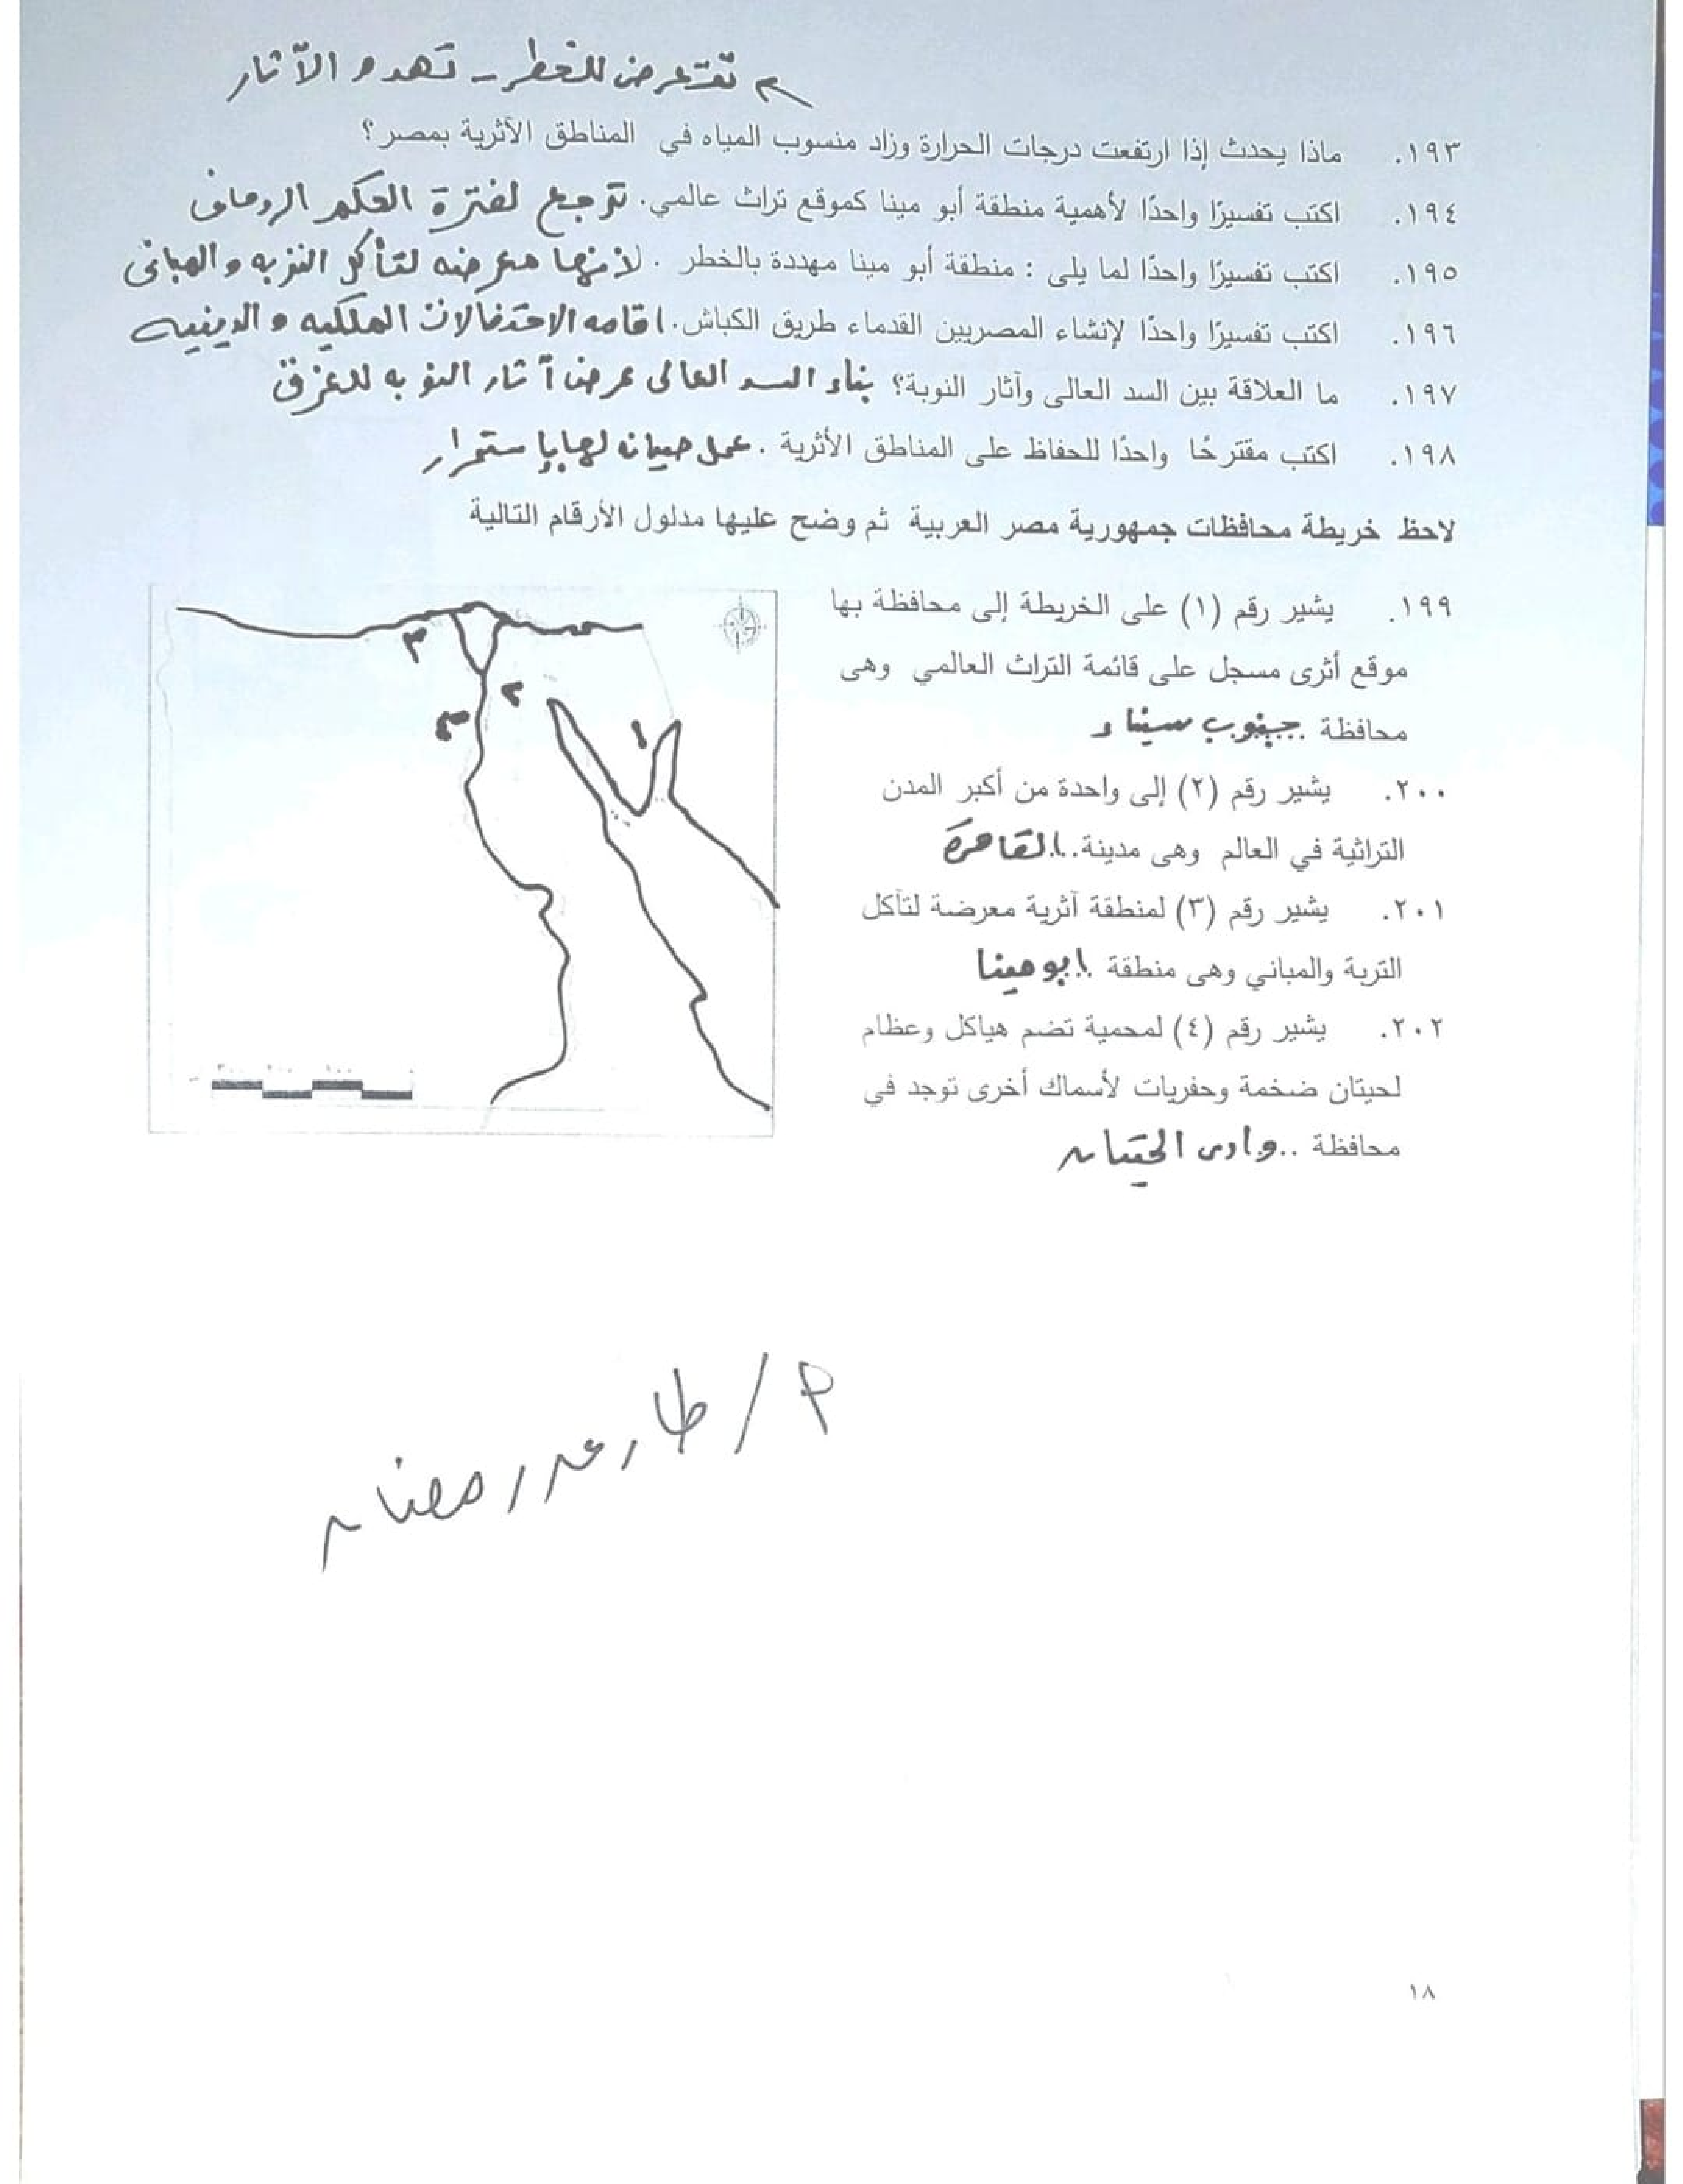 تتعرض للخطر - تهدم الآثار
١٩٣. ماذا يحدث إذا ارتفعت درجات الحرارة وزاد منسوب المياه في المناطق الآثرية بمصر؟
١٩٤. اكتب تفسيرًا واحدًا لأهمية منطقة أبو مينا كموقع تراث عالمي. ترجع لفترة الحكم الرومانى
١٩٥. اكتب تفسيرًا واحدًا لما يلى : منطقة أبو مينا مهددة بالخطر . لانها معرضه لتأكل التربه و المبانى
١٩٦. اكتب تفسيرًا واحدًا لإنشاء المصريين القدماء طريق الكباش. اقامه الاحتفالات الملكيه و الدينيه
١٩٧. ما العلاقة بين السد العالى وآثار النوبة؟ بناء السد العالى عرض آثار النوبه للغرق
١٩٨. اكتب مقترحًا واحدًا للحفاظ على المناطق الأثرية . عمل صيانه لها باستمرار
لاحظ خريطة محافظات جمهورية مصر العربية ثم وضح عليها مدلول الأرقام التالية
١٩٩. يشير رقم (١) على الخريطة إلى محافظة بها
موقع أثرى مسجل على قائمة التراث العالمي وهى
محافظة ..جنوب سيناء
٢٠٠. يشير رقم (٢) إلى واحدة من أكبر المدن
التراثية في العالم وهى مدينة..القاهرة
٢٠١. يشير رقم (٣) لمنطقة آثرية معرضة لتآكل
التربة والمباني وهى منطقة ..ابو مينا
٢٠٢. يشير رقم (٤) لمحمية تضم هياكل وعظام
لحيتان ضخمة وحفريات لأسماك أخرى توجد في
محافظة ..وادى الحيتان
٣
٢
٤
١
م/ طارق رمضان
١٨